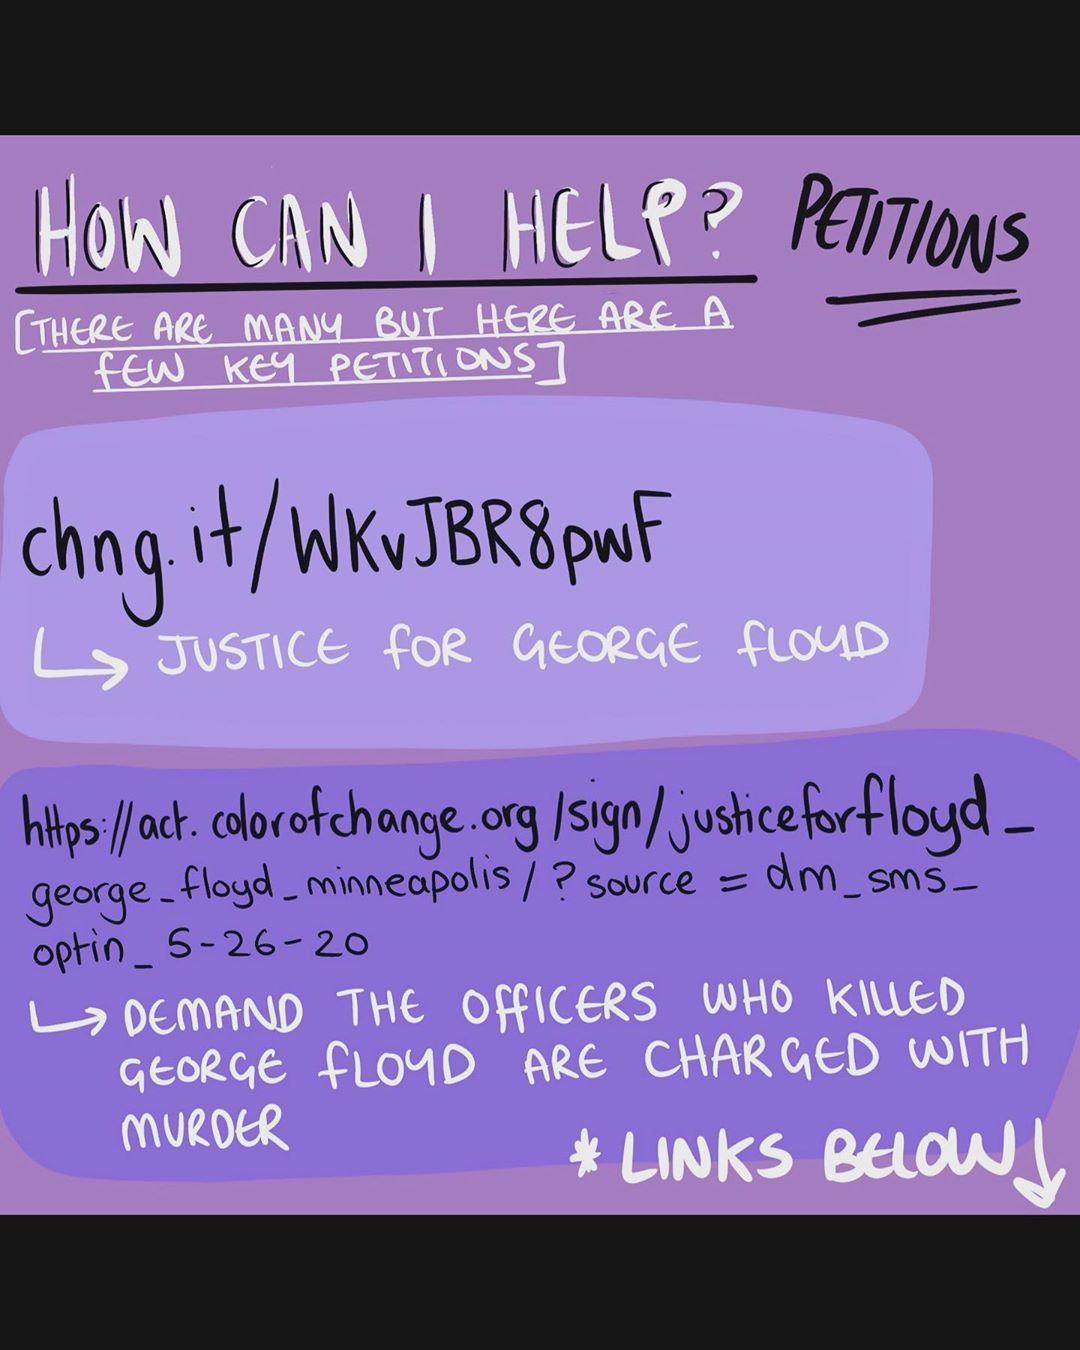 HOW CAN I HELP? PETITIONS
[THERE ARE MANY BUT HERE ARE A
FEW KEY PETITIONS]
chng.it/WKvJBR8pwF
JUSTICE FOR GEORGE FLOYD
https://act.colorofchange.org/sign/justiceforfloyd_
george_floyd_minneapolis/?source=dm_sms_
optin_5-26-20
DEMAND THE OFFICERS WHO KILLED
GEORGE FLOYD ARE CHARGED WITH
MURDER
* LINKS BELOW